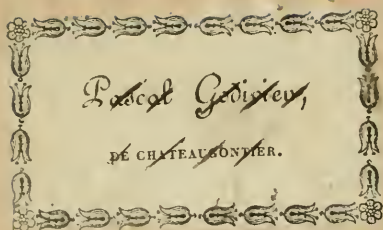 Pascal Godivier,
DE CHATEAUGONTIER.